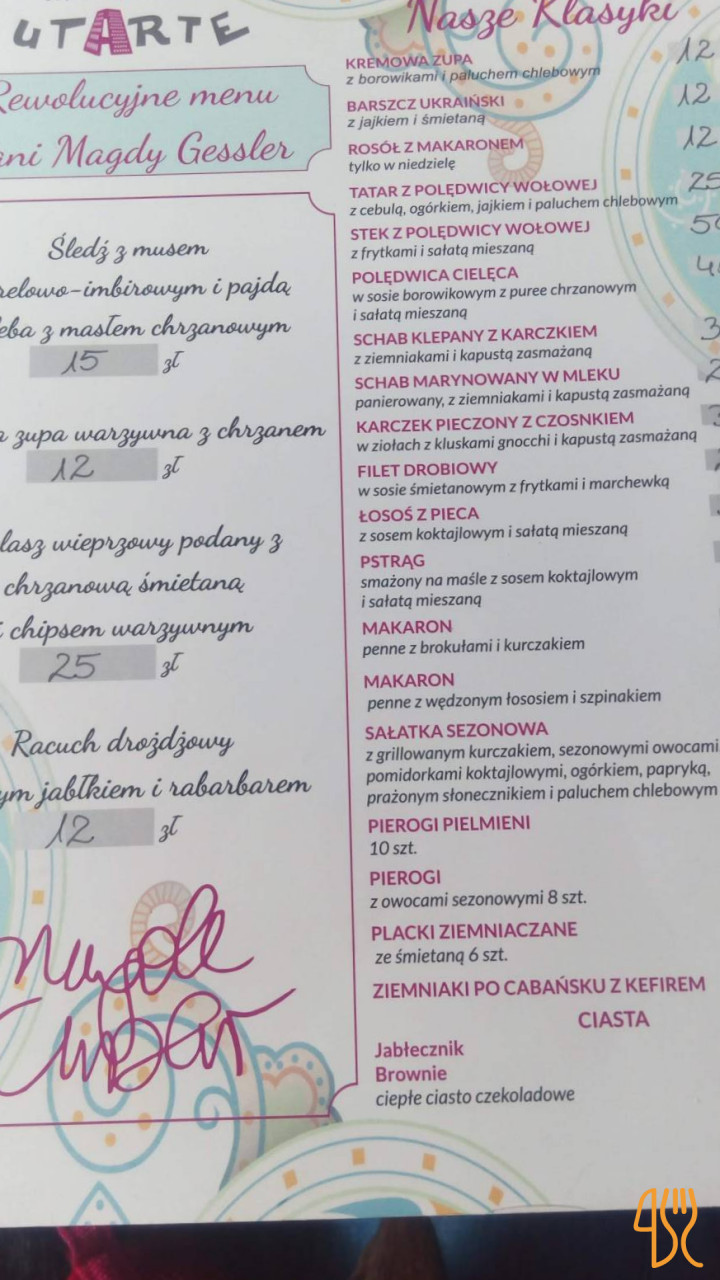 UTARTE
Rewolucyjne menu
Magdy Gessler
Śledź z musem
i pajdą
z masłem chrzanowym
15 zł
zupa warzywna z chrzanem
12 zł
wieprzowy podany z
chrzanową śmietaną
i chipsem warzywnym
25 zł
Racuch drożdżowy
jabłkiem i rabarbarem
12 zł
Nasze Klasyki
KREMOWA ZUPA 12
z borowikami i paluchem chlebowym
BARSZCZ UKRAIŃSKI 12
z jajkiem i śmietaną
ROSÓŁ Z MAKARONEM 12
tylko w niedzielę
TATAR Z POLĘDWICY WOŁOWEJ 25
z cebulą, ogórkiem, jajkiem i paluchem chlebowym
STEK Z POLĘDWICY WOŁOWEJ
z frytkami i sałatą mieszaną
POLĘDWICA CIELĘCA
w sosie borowikowym z puree chrzanowym
i sałatą mieszaną
SCHAB KLEPANY Z KARCZKIEM
z ziemniakami i kapustą zasmażaną
SCHAB MARYNOWANY W MLEKU
panierowany, z ziemniakami i kapustą zasmażaną
KARCZEK PIECZONY Z CZOSNKIEM
w ziołach z kluskami gnocchi i kapustą zasmażaną
FILET DROBIOWY
w sosie śmietanowym z frytkami i marchewką
ŁOSOŚ Z PIECA
z sosem koktajlowym i sałatą mieszaną
PSTRĄG
smażony na maśle z sosem koktajlowym
i sałatą mieszaną
MAKARON
penne z brokułami i kurczakiem
MAKARON
penne z wędzonym łososiem i szpinakiem
SAŁATKA SEZONOWA
z grillowanym kurczakiem, sezonowymi owocami
pomidorkami koktajlowymi, ogórkiem, papryką,
prażonym słonecznikiem i paluchem chlebowym
PIEROGI PIELMIENI
10 szt.
PIEROGI
z owocami sezonowymi 8 szt.
PLACKI ZIEMNIACZANE
ze śmietaną 6 szt.
ZIEMNIAKI PO CABAŃSKU Z KEFIREM
CIASTA
Jabłecznik
Brownie
ciepłe ciasto czekoladowe